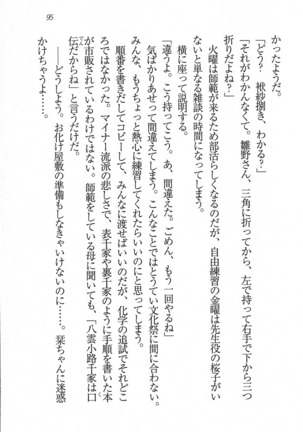 95
かったような?」
「どう? 袱紗捌き、わかる?」
「それがわかんなくて。雛野さん、三角に折ってから、左で持って右手で下から三つ
折りだよね?」
火曜は師範が来るため部活らしくなるのだが、自由練習の金曜は先生役の桜子がい
ないと単なる雑談の時間になってしまう。
横に座って説明する。
「違うよ。こう持ってこう。あ、間違えた。ごめん、もう一回やるね」
気ばかりあせって間違えてしまう。こんなことではとうてい文化祭に間に合わない。
みんな、もうちょっと熱心に練習してくれたらいいのにと思ってしまう。
順番を書きだしてコピーして、みんなに渡せばいいのだが、化学の追試でそれどこ
ろではなかった。マイナー流派の悲しさで、表千家や裏千家のように手順を書いた本
が市販されているわけではない。師範をしている母に聞いても、「八雲小路千家は口
伝だから」の一言だけだ。
――どうしよう。お化け屋敷の準備もしなきゃいけないのに……。栞ちゃんに迷惑
かけちゃうよ……。